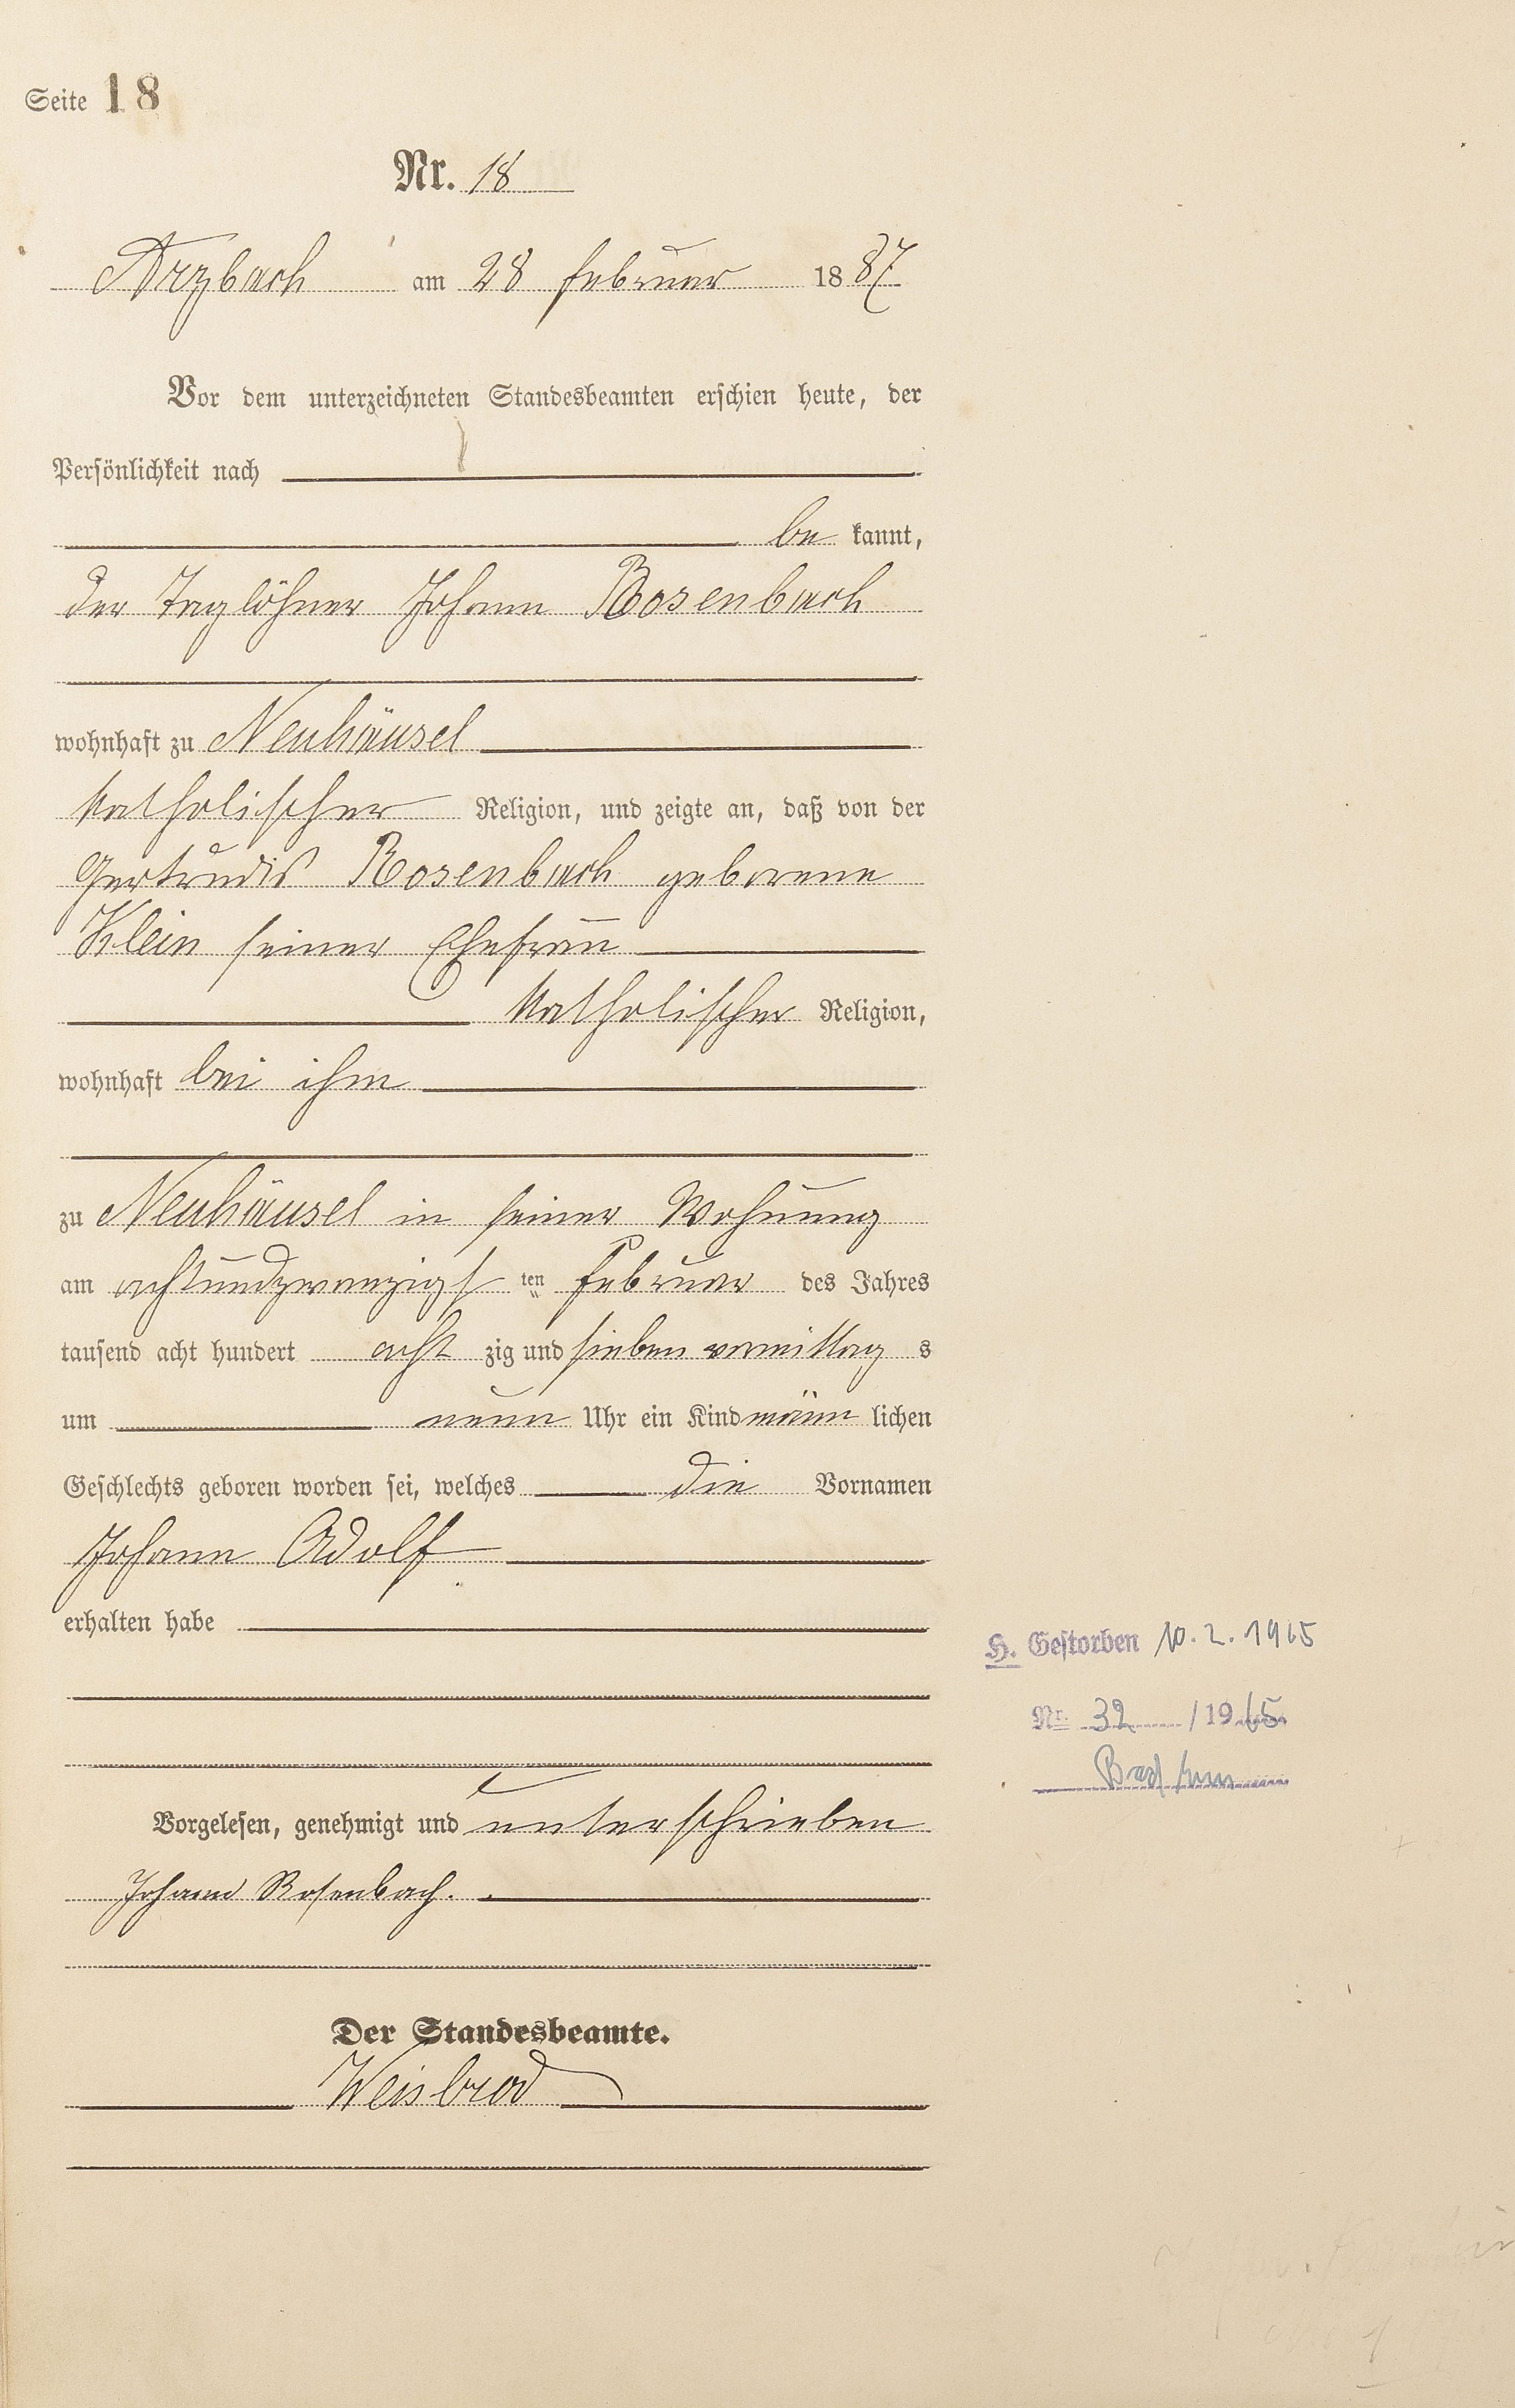 Seite 18
Nr. 18
Arzbach am 28 Februar 1887
Vor dem unterzeichneten Standesbeamten erschien heute, der
Persönlichkeit nach
be kannt,
der Taglöhner Johann Rosenbach
wohnhaft zu Neuhäusel
katholischer Religion, und zeigte an, daß von der
Gertrudis Rosenbach geborene
Klein seiner Ehefrau
katholischer Religion,
wohnhaft bei ihm
zu Neuhäusel in seiner Wohnung
am achtundzwanzigs ten Februar des Jahres
tausend acht hundert acht zig und sieben vormittag s
um neun Uhr ein Kind männ lichen
Geschlechts geboren worden sei, welches die Vornamen
Johann Adolf
erhalten habe
H. Gestorben 10.2.1965
Nr. 32 /1965
Bad Ems
Vorgelesen, genehmigt und unterschrieben
Johann Rosenbach.
Der Standesbeamte.
Weisbrod